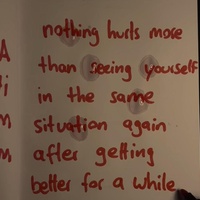 nothing hurts more
than seeing yourself
in the same
situation again
after getting
better for a while